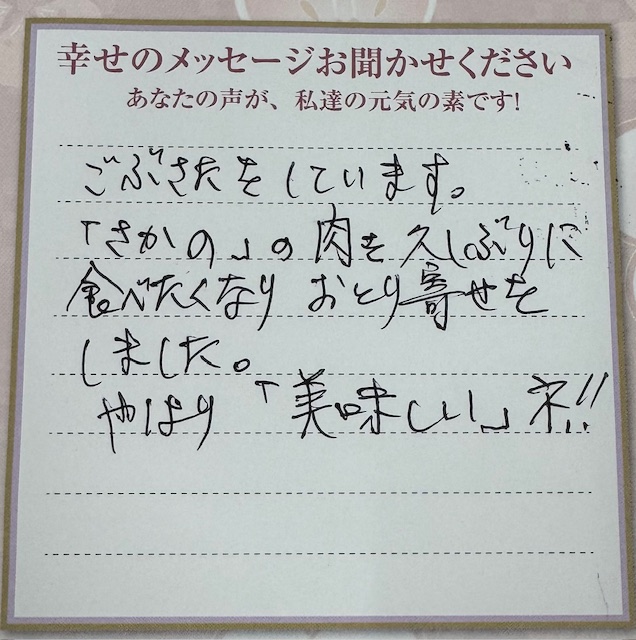 幸せのメッセージお聞かせください
あなたの声が、私達の元気の素です!
ごぶさたをしています。
「さかの」の肉を久しぶりに
食べたくなり おとり寄せを
しました。
やはり「美味しい」ネ!!